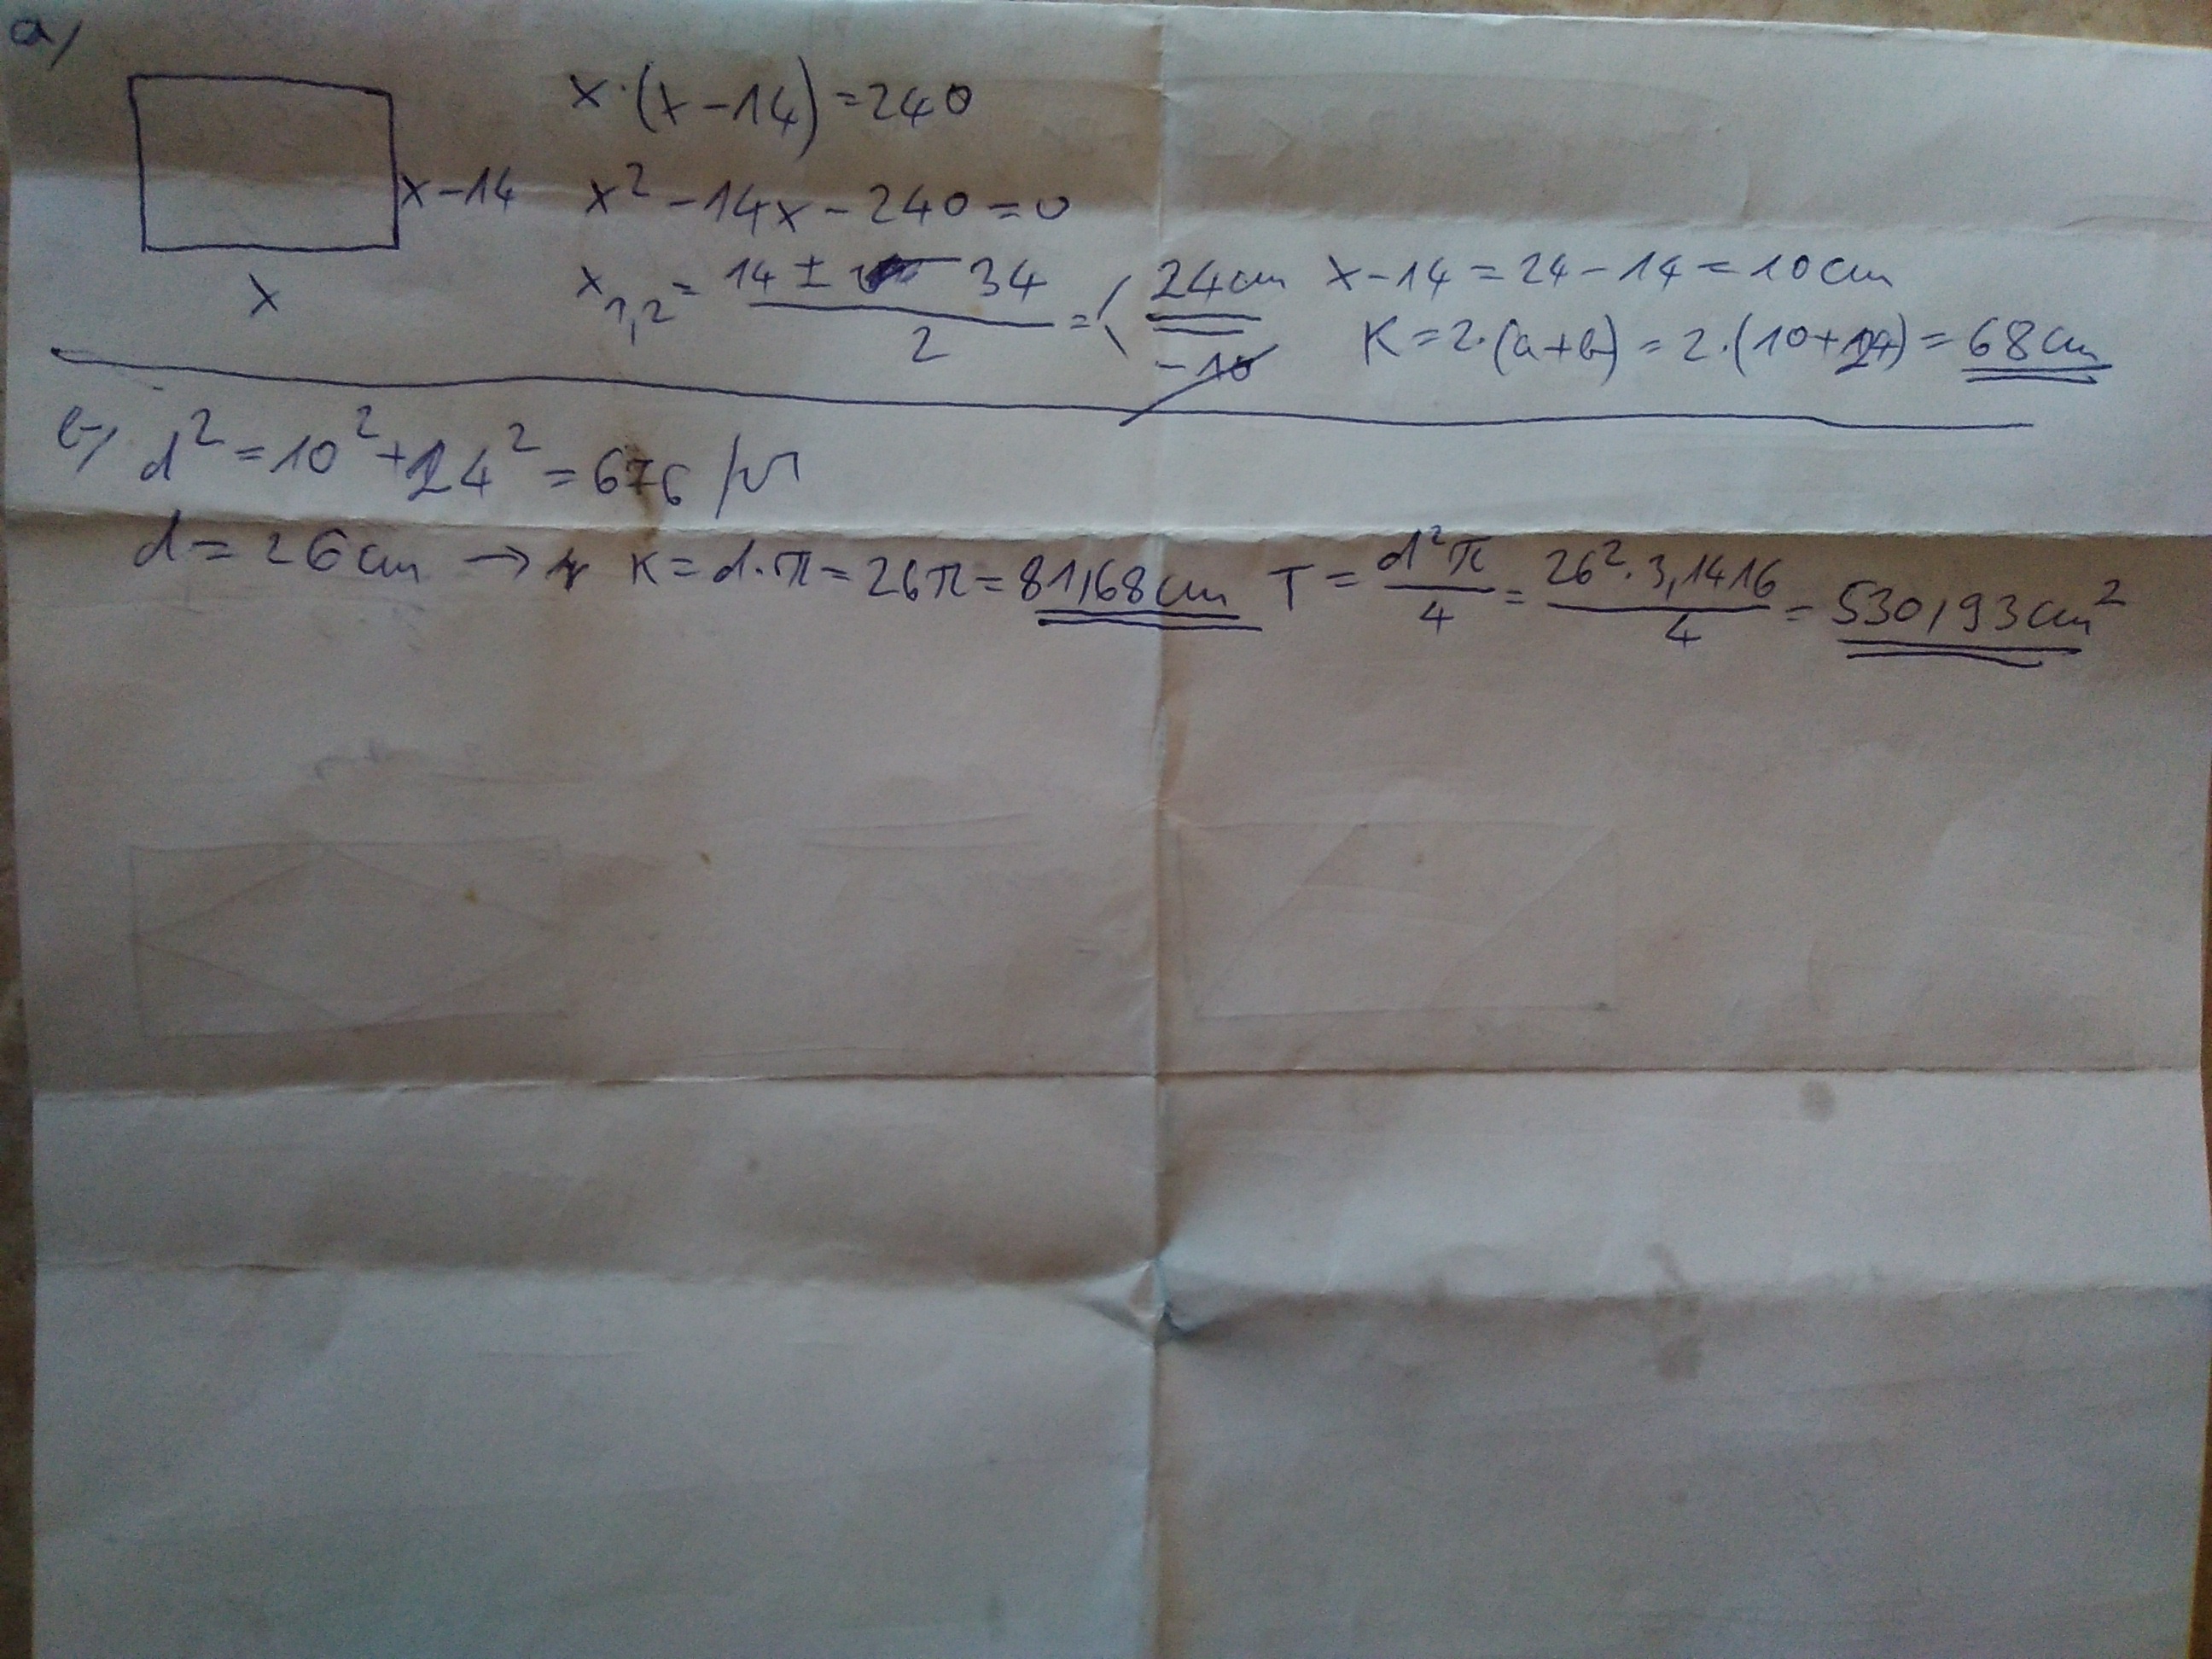 a)
x·(x-14)=240
x-14
x²-14x-240=0
x
x1,2 = (14 ± 34)/2 = ⟨ 24cm
-10
x-14=24-14=10cm
K=2·(a+b)=2·(10+24)=68cm
b) d²=10²+24²=676 /√
d=26cm → K=d·π=26π=81,68cm T=d²π/4=26²·3,1416/4=530,93cm²